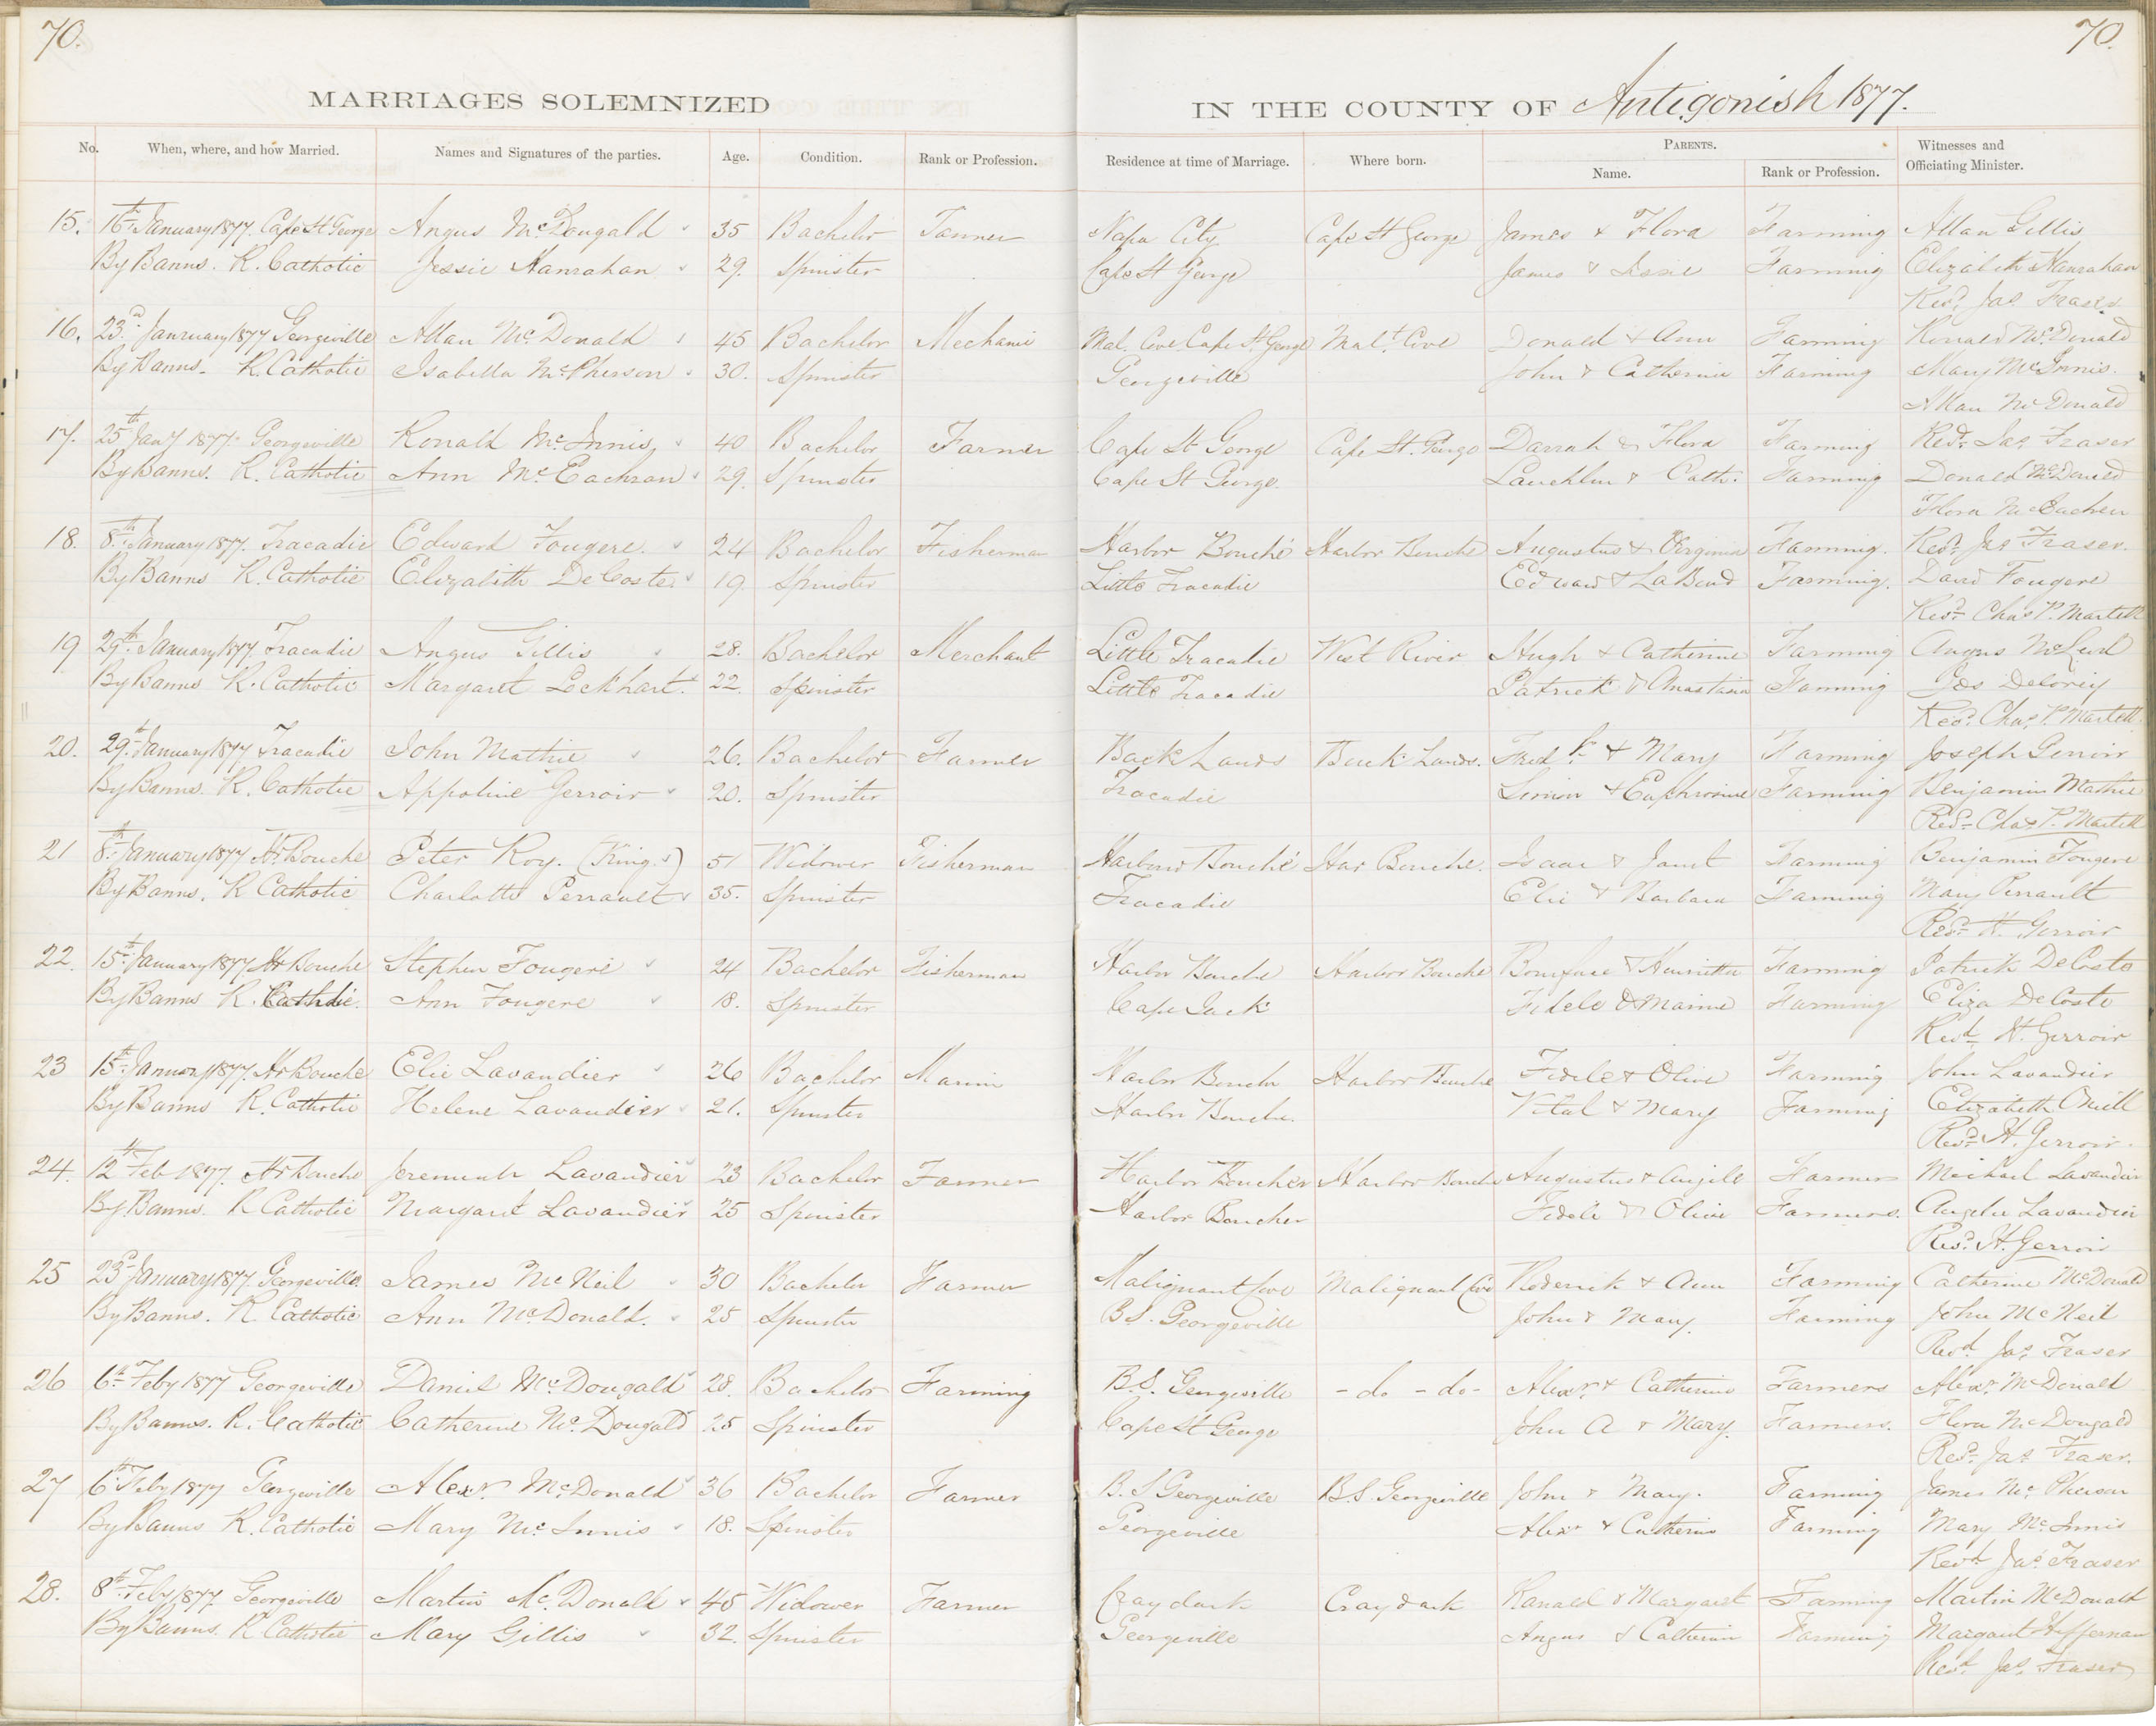 70.
70.
MARRIAGES SOLEMNIZED
IN THE COUNTY OF Antigonish 1877.
No. When, where, and how Married. Names and Signatures of the parties. Age. Condition. Rank or Profession. Residence at time of Marriage. Where born. PARENTS. Name. Rank or Profession. Witnesses and Officiating Minister.
15. 16th January 1877. Cape St George Angus McDougald 35 Bachelor Tanner Napa City Cape St George James & Flora Farming Allan Gillis
By Banns. R. Catholic Jessie Hanrahan 29. Spinster Cape St George James & Farming Elizabeth Hanrahan
Revd. Jas Fraser
16. 23d January 1877 Georgeville Allan McDonald 45 Bachelor Mechanic Mal. Cove Cape St. George Malt. Cove Donald & Ann Farming Ronald McDonald
By Banns. R. Catholic Isabella McPherson 30. Spinster Georgeville John & Catherine Farming Mary McInnis.
Allan McDonald
17. 25th Jany 1877. Georgeville Ronald McInnis 40 Bachelor Farmer Cape St George Cape St. George & Flora Farming Revd. Jas Fraser
By Banns. R. Catholic Ann McEachran 29. Spinster Cape St George. Lauchlin & Cath. Farming Donald McDonald
Flora McEachern
18. 8th January 1877. Tracadie Edward Fougere. 24 Bachelor Fisherman Harbor Bouché Harbor Bouche Augustus & Virginia Farming. Revd. Jas Fraser.
By Banns R. Catholic Elizabeth DeCoste 19. Spinster Little Tracadie Edward & Farming. David Fougere
Revd. Chas P. Martell
19 29th January 1877. Tracadie Angus Gillis 28. Bachelor Merchant Little Tracadie West River Hugh & Catherine Farming Angus
By Banns R. Catholic Margaret Lockhart. 22. Spinster Little Tracadie Patrick & Anastasia Farming Jos Delorey
Revd. Chas P. Martell
20. 29th January 1877 Tracadie John Mathie 26. Bachelor Farmer Back Lands Back Lands. Fredk. & Mary Farming Joseph Gerroir
By Banns. R. Catholic Appoline Gerroir 20. Spinster Tracadie Simon & Euphrosine Farming Benjamin Mathie
Revd. Chas P. Martell
21 8th January 1877 Hr Bouche Peter Roy. (King.) 51 Widower Fisherman Harbour Bouché Har Bouche. Isaac & Janet Farming Benjamin Fougere
By Banns. R Catholic Charlotte Perrault 35. Spinster Tracadie Elie & Barbara Farming Mary Perrault
Revd. H. Gerroir
22. 15th January 1877 Hr Bouche Stephen Fougere 24 Bachelor Fisherman Harbor Bouche Harbor Bouche Boniface & Henrietta Farming Patrick DeCoste
By Banns R. Catholic. Ann Fougere 18. Spinster Cape Jack Fidele & Farming Eliza DeCoste
Revd. H. Gerroir
23 15th January 1877. Hr Bouche Elie Lavandier 26 Bachelor Harbor Bouche Harbor Bouche Fidele & Olive Farming John Lavandier
By Banns R. Catholic Helene Lavandier 21. Spinster Harbor Bouche. Vital & Mary Farming Elizabeth
Revd. H. Gerroir.
24. 12th Feb 1877. Hr Bouche Jeremiah Lavandier 23 Bachelor Farmer Harbor Boucher Harbor Bouche Augustus & Farmers Michael Lavandier
By Banns. R Catholic Margaret Lavandier 25 Spinster Harbor Boucher Fidele & Olive Farmers. Angelie Lavandier
Revd. H. Gerroir
25 23d January 1877. Georgeville James McNeil 30 Bachelor Farmer Malignant Cove Malignant Cove Roderick & Ann Farming Catherine McDonald
By Banns. R. Catholic Ann McDonald. 25 Spinster B.S. Georgeville John & Mary. Farming John McNeil
Revd. Jas. Fraser
26 6th Feby 1877 Georgeville Daniel McDougald 28. Bachelor Farming B.S. Georgeville - do - do - Alexr. & Catherine Farmers Alexr. McDonald
By Banns. R. Catholic Catherine McDougald 25 Spinster Cape St George John A & Mary. Farmers. Flora McDougald
Revd. Jas Fraser.
27 6th Feby 1877 Georgeville Alexr. McDonald 36 Bachelor Farmer B.S Georgeville B.S. Georgeville John & Mary. Farming James McPherson
By Banns R. Catholic Mary McInnis 18. Spinster Georgeville Alexr & Catherine Farming Mary McInnis
Revd. Jas Fraser
28. 8th Feby 1877 Georgeville Martin McDonald 45 Widower Farmer Craydark Craydark Ranald & Margaret Farming Martin McDonald
By Banns. R Catholic Mary Gillis 32. Spinster Georgeville Angus & Catherine Farming Margaret Heffernan
Revd. Jas. Fraser